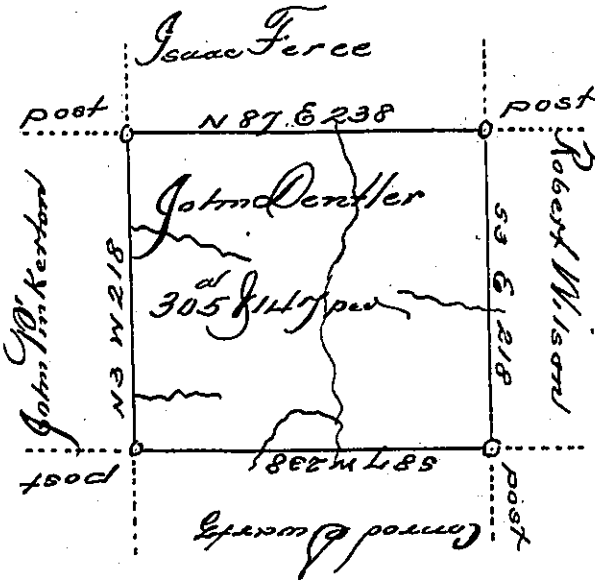 Isaac Feree
post
N 87 E 238
post
John Pinkerton
N3 W 218
John Dentler
305 a & 147 per
S3 E 218
Robert Wilson
post
S87 W 238
post
Conrod Swarts